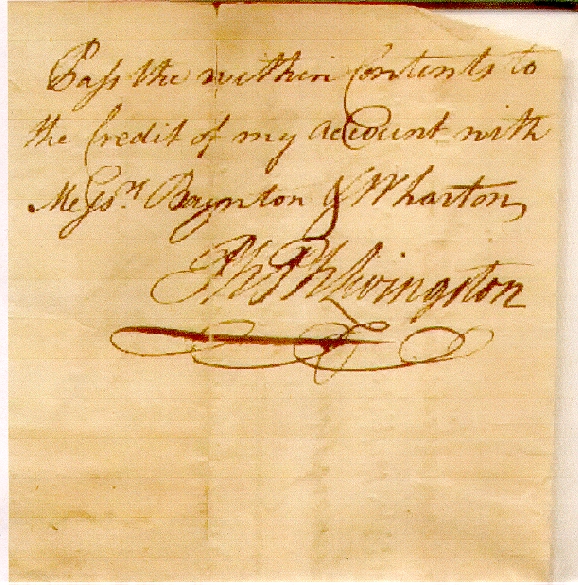 Pass the within Contents to
the Credit of my account with
Messrs. Baynton & Wharton
Ph Ph Livingston